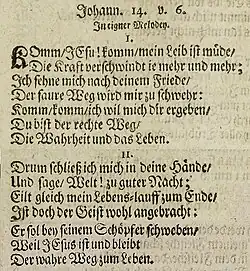 Johann. 14. v. 6.
In eigner Melodey.
I.
KOmm/JEsu! komm/mein Leib ist müde/
Die Kraft verschwindt ie mehr und mehr;
Ich sehne mich nach deinem Friede/
Der saure Weg wird mir zu schwehr:
Komm/komm/ich wil mich dir ergeben/
Du bist der rechte Weg/
Die Wahrheit und das Leben.
II.
Drum schließ ich mich in deine Hände/
Und sage/Welt! zu guter Nacht;
Eilt gleich mein Lebens-lauff zum Ende/
Ist doch der Geist wohl angebracht:
Er sol bey seinem Schöpfer schweben/
Weil JEsus ist und bleibt
Der wahre Weg zum Leben.